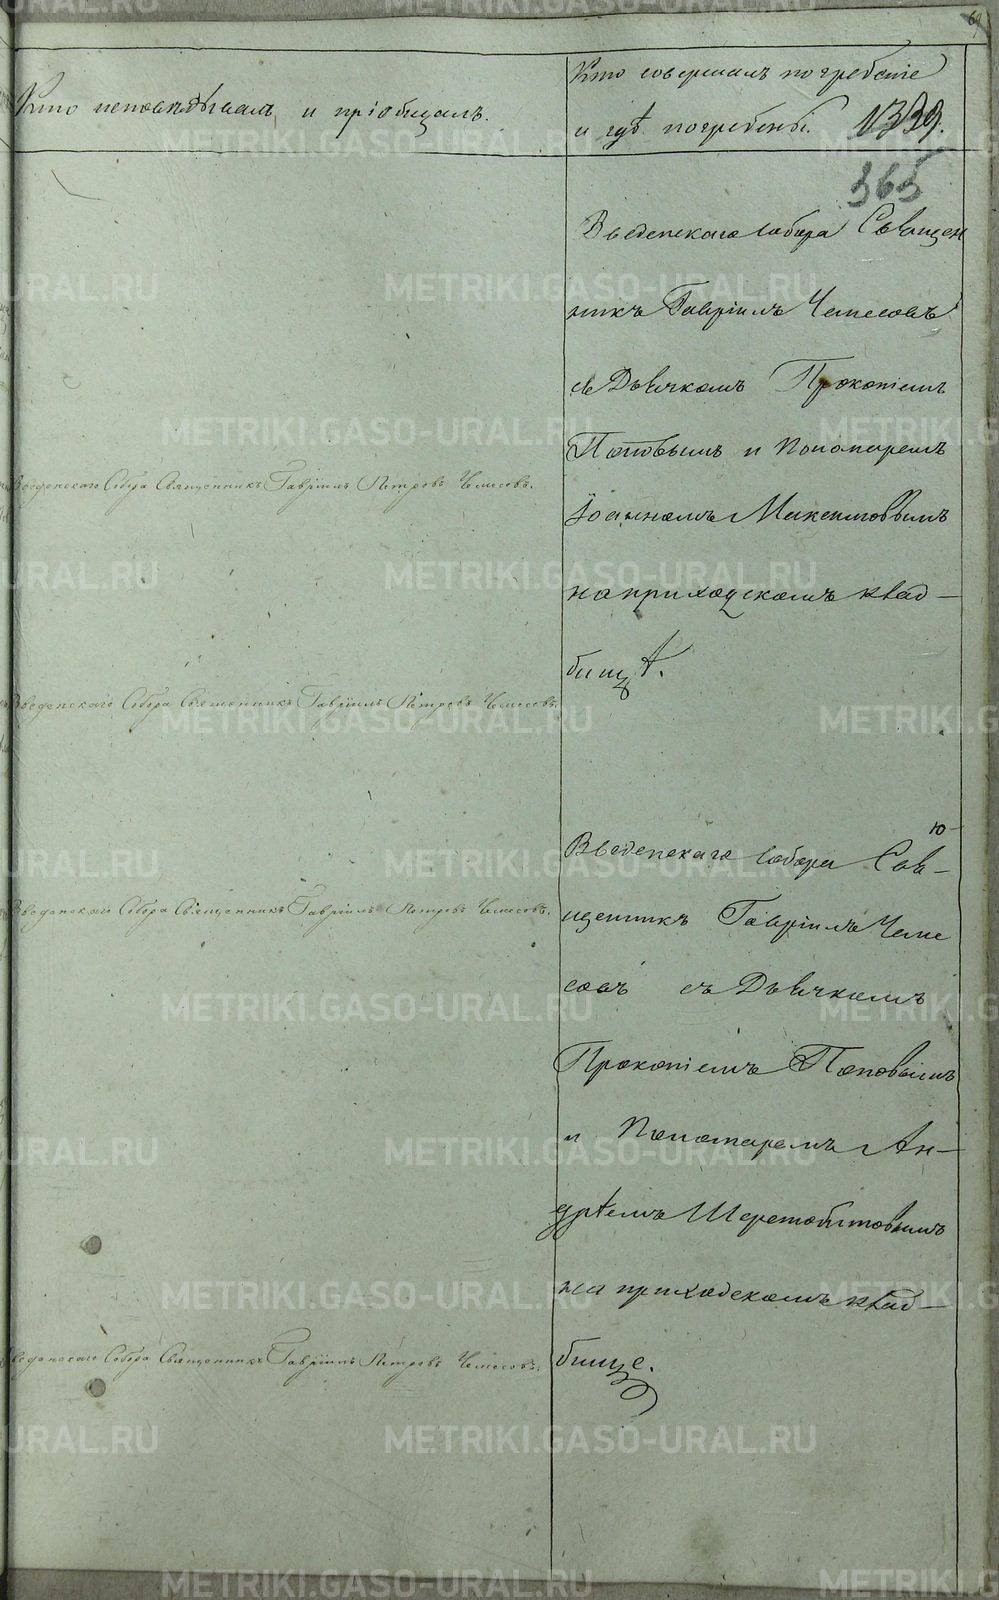 Кто исповѣдывалъ и пріобщалъ.
Кто совершалъ погребеніе
и гдѣ погребены.
1339.
365
Введенскаго собора Священ
никъ Гавріилъ Чемесовъ
съ Дьячкомъ Прокопіемъ
Поповымъ и Пономаремъ
Іоанномъ Максимовымъ
на приходскомъ клад–
бищѣ.
Введенскаго Собора Священникъ Гавріилъ Петровъ Чемесовъ.
Введенскаго Собора Священникъ Гавріилъ Петровъ Чемесовъ.
Введенскаго Собора Священникъ Гавріилъ Петровъ Чемесовъ.
Введенскаго собора Свя–
щенникъ Гавріилъ Чеме
совъ съ Дьячкомъ
Прокопіемъ Поповымъ
и Пономаремъ Ан–
дрѣемъ Шеремѣтовымъ
на приходскомъ клад–
бище.
Введенскаго Собора Священникъ Гавріилъ Петровъ Чемесовъ.
METRIKI.GASO-URAL.RU